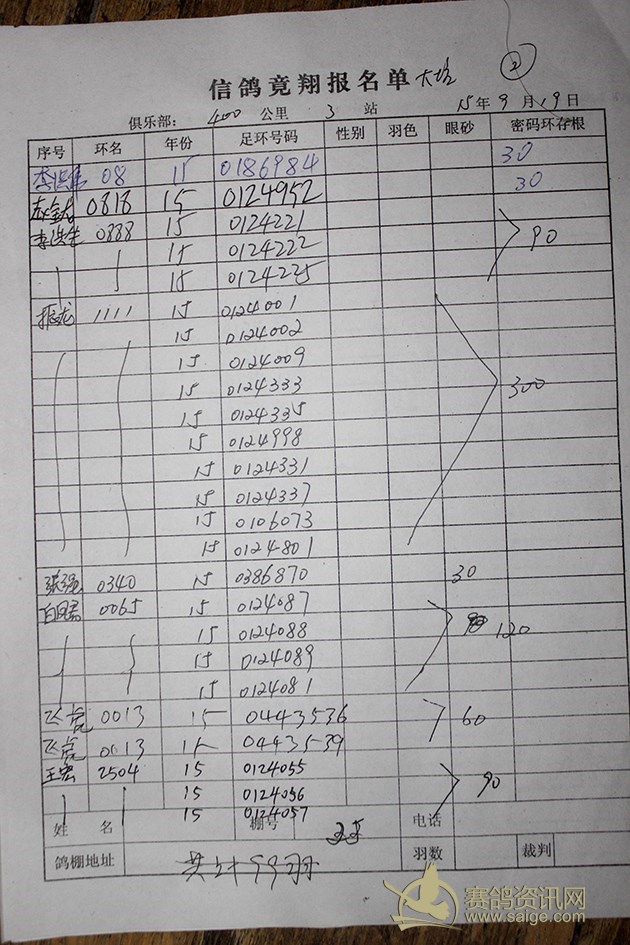 ②
信鸽竟翔报名单
俱乐部: 400 公里 3 站 15年9月19日
序号 环名 年份 足环号码 性别 羽色 眼砂 密码环存根
08 15 0186984 30
0818 15 0124952 30
0888 15 0124221
15 0124222 90
15 0124225
振龙 1111 15 0124001
15 0124002
15 0124009
15 0124333 300
15 0124335
15 0124998
15 0124331
15 0124337
15 0106073
15 0124801
张强 0340 15 0386870 30
0065 15 0124087
15 0124088 120
15 0124089
15 0124081
飞虎 0013 15 0443536 60
飞虎 0013 15 0443539
王宏 2504 15 0124055 90
15 0124056
15 0124057
姓名 棚号 电话
鸽棚地址 羽数 裁判
赛鸽资讯网
www.saige.com